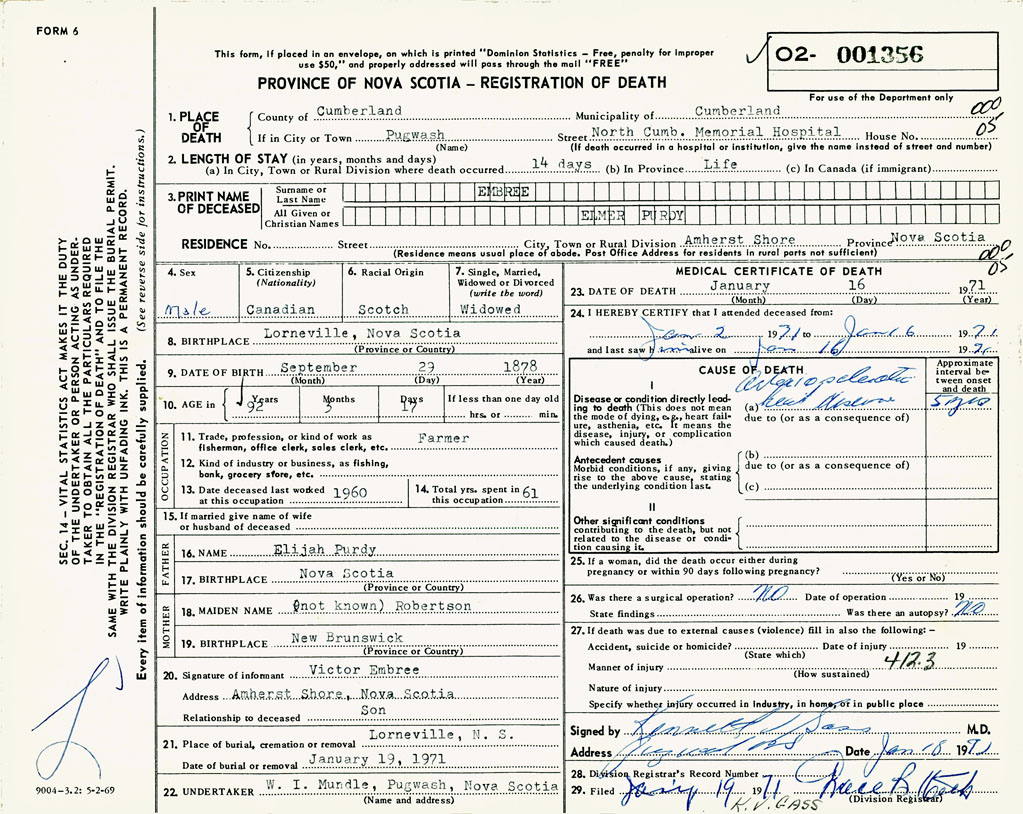 FORM 6
This form, if placed in an envelope, on which is printed "Dominion Statistics – Free, penalty for improper
use $50," and properly addressed will pass through the mail "FREE"
O2- 001356
PROVINCE OF NOVA SCOTIA – REGISTRATION OF DEATH
For use of the Department only
000
05
1. PLACE OF DEATH
County of Cumberland Municipality of Cumberland
If in City or Town Pugwash Street North Cumb. Memorial Hospital House No.
(Name) (If death occurred in a hospital or institution, give the name instead of street and number)
2. LENGTH OF STAY (in years, months and days)
(a) In City, Town or Rural Division where death occurred 14 days (b) In Province Life (c) In Canada (if immigrant)
3. PRINT NAME OF DECEASED
Surname or Last Name EMBREE
All Given or Christian Names ELMER PURDY
RESIDENCE No. Street City, Town or Rural Division Amherst Shore Province Nova Scotia
(Residence means usual place of abode. Post Office Address for residents in rural parts not sufficient)
000
05
4. Sex
Male
5. Citizenship
(Nationality)
Canadian
6. Racial Origin
Scotch
7. Single, Married,
Widowed or Divorced
(write the word)
Widowed
8. BIRTHPLACE Lorneville, Nova Scotia
(Province or Country)
9. DATE OF BIRTH September 29 1878
(Month) (Day) (Year)
10. AGE in 92 Years 3 Months 17 Days If less than one day old
hrs. or min.
OCCUPATION
11. Trade, profession, or kind of work as
fisherman, office clerk, sales clerk, etc. Farmer
12. Kind of industry or business, as fishing,
bank, grocery store, etc.
13. Date deceased last worked
at this occupation 1960
14. Total yrs. spent in
this occupation 61
15. If married give name of wife
or husband of deceased
FATHER
16. NAME Elijah Purdy
17. BIRTHPLACE Nova Scotia
(Province or Country)
MOTHER
18. MAIDEN NAME (not known) Robertson
19. BIRTHPLACE New Brunswick
(Province or Country)
20. Signature of informant Victor Embree
Address Amherst Shore, Nova Scotia
Relationship to deceased Son
21. Place of burial, cremation or removal Lorneville, N. S.
Date of burial or removal January 19, 1971
22. UNDERTAKER W. I. Mundle, Pugwash, Nova Scotia
(Name and address)
MEDICAL CERTIFICATE OF DEATH
23. DATE OF DEATH January 16 1971
(Month) (Day) (Year)
24. I HEREBY CERTIFY that I attended deceased from:
Jan 2 1971 to Jan 16 1971
and last saw him alive on Jan 16 19
CAUSE OF DEATH
Approximate
interval be-
tween onset
and death
I
Disease or condition directly lead-
ing to death (This does not
mean the mode of dying, e.g., heart fail-
ure, asthenia, etc. It means the
disease, injury, or complication
which caused death.)
(a) Heart Disease 5 yrs
due to (or as a consequence of)
Antecedent causes
Morbid conditions, if any, giving
rise to the above cause, stating
the underlying condition last.
(b)
due to (or as a consequence of)
(c)
II
Other significant conditions
contributing to the death, but not
related to the disease or condi-
tion causing it.
25. If a woman, did the death occur either during
pregnancy or within 90 days following pregnancy?
(Yes or No)
26. Was there a surgical operation? NO Date of operation 19
State findings Was there an autopsy? NO
27. If death was due to external causes (violence) fill in also the following: –
Accident, suicide or homicide? Date of injury 19
(State which)
412.3
Manner of injury
(How sustained)
Nature of injury
Specify whether injury occurred in Industry, in home, or in public place
Signed by Kenneth V Gass M.D.
Address Pugwash NS Date Jan 18 1971
28. Division Registrar's Record Number
29. Filed Jan 19 1971
(Division Registrar)
K.V. GASS
SEC. 14 – VITAL STATISTICS ACT MAKES IT THE DUTY
OF THE UNDERTAKER OR PERSON ACTING AS UNDER-
TAKER TO OBTAIN ALL THE PARTICULARS REQUIRED
IN THE "REGISTRATION OF DEATH" AND TO FILE THE
SAME WITH THE DIVISION REGISTRAR WHO SHALL ISSUE THE BURIAL PERMIT.
WRITE PLAINLY WITH UNFADING INK. THIS IS A PERMANENT RECORD.
Every item of information should be carefully supplied. (See reverse side for instructions.)
9004-3.2: 5-2-69